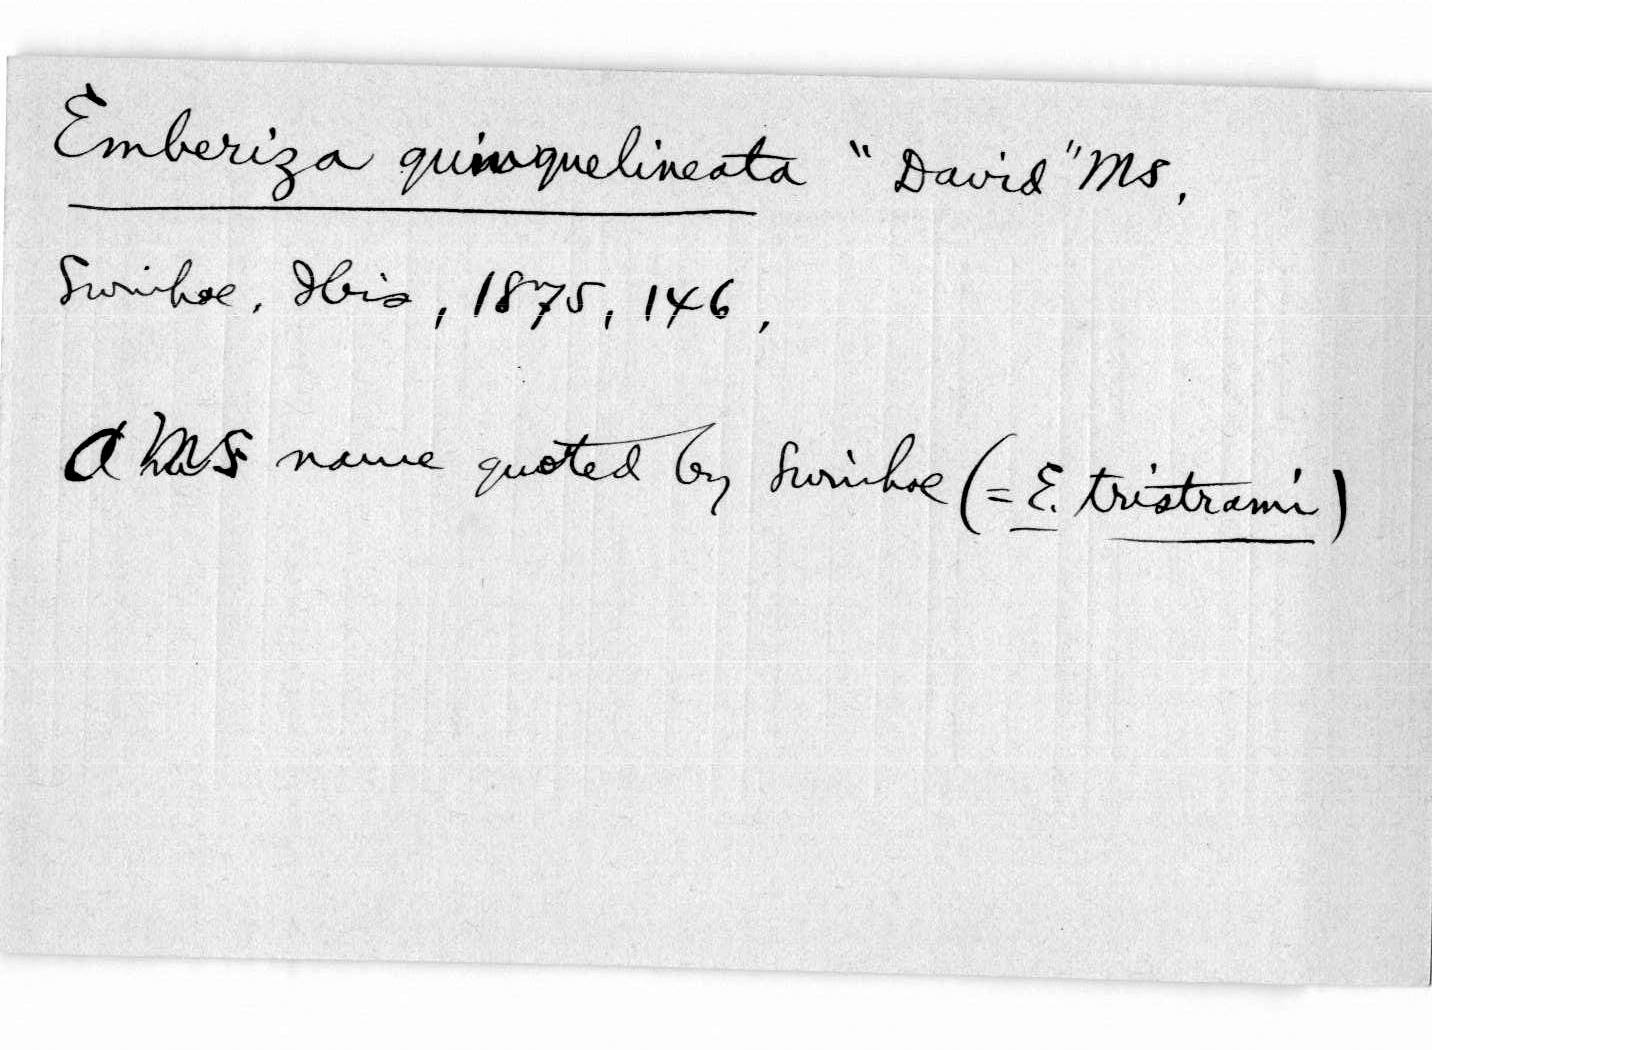 Emberiza quinquelineata "David" Ms,
Swinhoe, Ibis, 1875, 146,
A MS name quoted by Swinhoe (= E. tristrami)